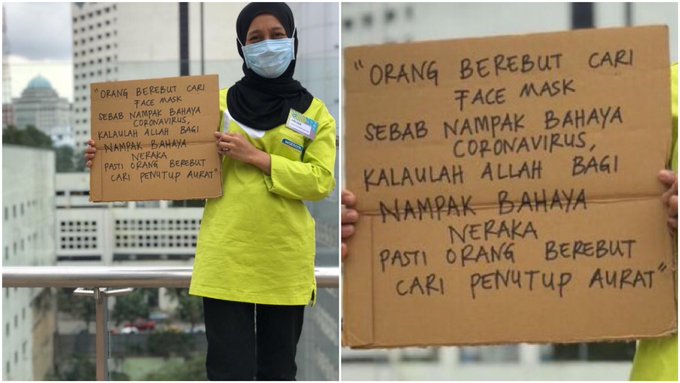 "ORANG BEREBUT CARI
FACE MASK
SEBAB NAMPAK BAHAYA
CORONAVIRUS,
KALAULAH ALLAH BAGI
NAMPAK BAHAYA
NERAKA
PASTI ORANG BEREBUT
CARI PENUTUP AURAT"
"ORANG BEREBUT CARI
FACE MASK
SEBAB NAMPAK BAHAYA
CORONAVIRUS,
KALAULAH ALLAH BAGI
NAMPAK BAHAYA
NERAKA
PASTI ORANG BEREBUT
CARI PENUTUP AURAT"